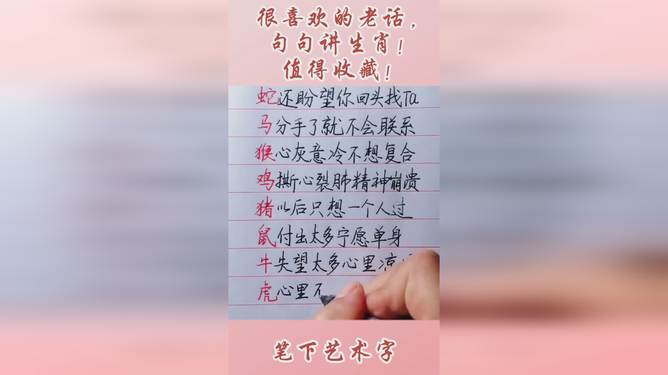 很喜欢的老话，
句句讲生肖！
值得收藏！
蛇还盼望你回头找Ta
马分手了就不会联系
猴心灰意冷不想复合
鸡撕心裂肺精神崩溃
猪以后只想一个人过
鼠付出太多宁愿单身
牛失望太多心里凉
虎心里不
笔下艺术字